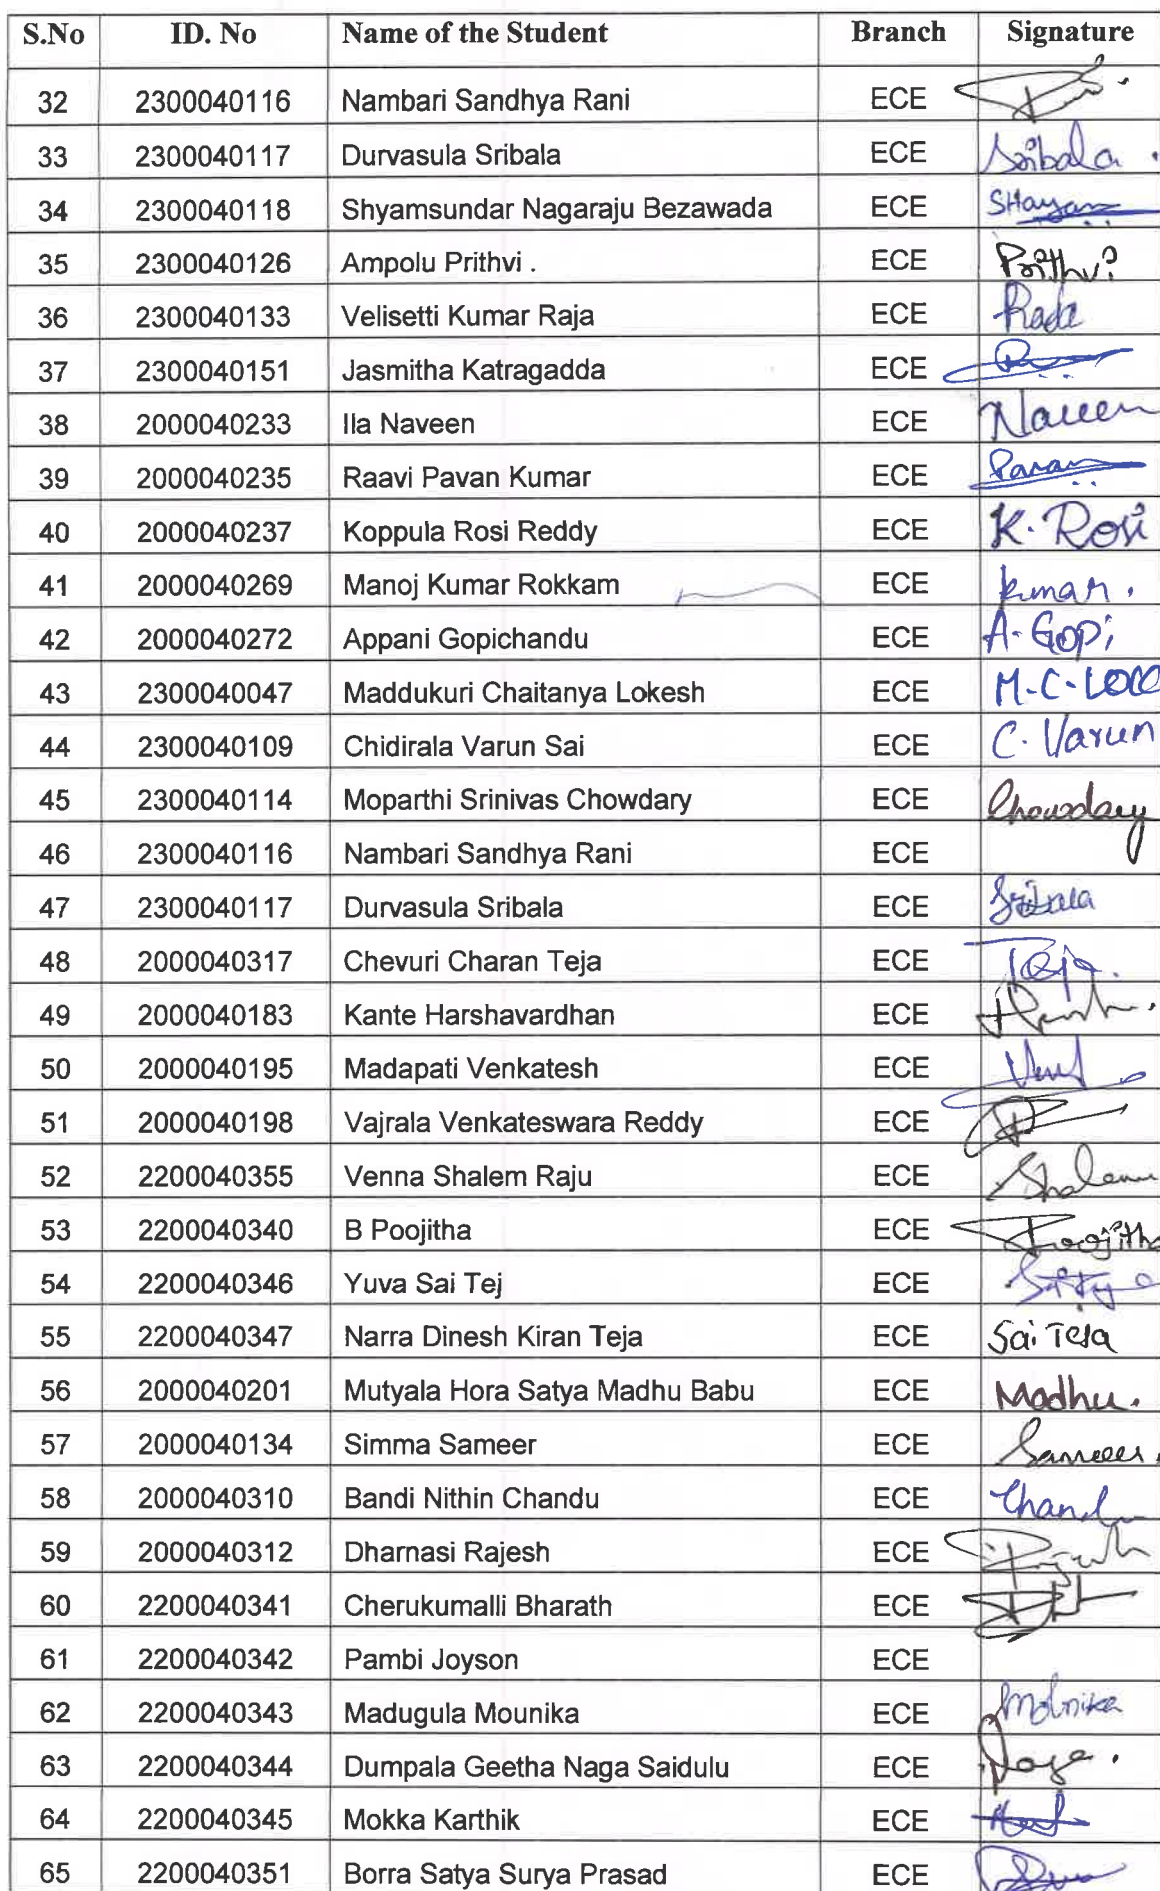 S.No ID. No Name of the Student Branch Signature
32 2300040116 Nambari Sandhya Rani ECE
33 2300040117 Durvasula Sribala ECE Sribala .
34 2300040118 Shyamsundar Nagaraju Bezawada ECE SHayam
35 2300040126 Ampolu Prithvi . ECE Prithvi
36 2300040133 Velisetti Kumar Raja ECE Raja
37 2300040151 Jasmitha Katragadda ECE
38 2000040233 Ila Naveen ECE Naveen
39 2000040235 Raavi Pavan Kumar ECE Pavan
40 2000040237 Koppula Rosi Reddy ECE K. Rosi
41 2000040269 Manoj Kumar Rokkam ECE kumar.
42 2000040272 Appani Gopichandu ECE A. Gopi
43 2300040047 Maddukuri Chaitanya Lokesh ECE M.C.
44 2300040109 Chidirala Varun Sai ECE C. Varun
45 2300040114 Moparthi Srinivas Chowdary ECE Chowdary
46 2300040116 Nambari Sandhya Rani ECE
47 2300040117 Durvasula Sribala ECE Sribala
48 2000040317 Chevuri Charan Teja ECE Teja.
49 2000040183 Kante Harshavardhan ECE
50 2000040195 Madapati Venkatesh ECE
51 2000040198 Vajrala Venkateswara Reddy ECE
52 2200040355 Venna Shalem Raju ECE Shalem
53 2200040340 B Poojitha ECE Poojitha
54 2200040346 Yuva Sai Tej ECE
55 2200040347 Narra Dinesh Kiran Teja ECE Sai Teja
56 2000040201 Mutyala Hora Satya Madhu Babu ECE Madhu.
57 2000040134 Simma Sameer ECE Sameer.
58 2000040310 Bandi Nithin Chandu ECE Chandu
59 2000040312 Dharnasi Rajesh ECE
60 2200040341 Cherukumalli Bharath ECE
61 2200040342 Pambi Joyson ECE
62 2200040343 Madugula Mounika ECE Mounika
63 2200040344 Dumpala Geetha Naga Saidulu ECE Naga .
64 2200040345 Mokka Karthik ECE
65 2200040351 Borra Satya Surya Prasad ECE